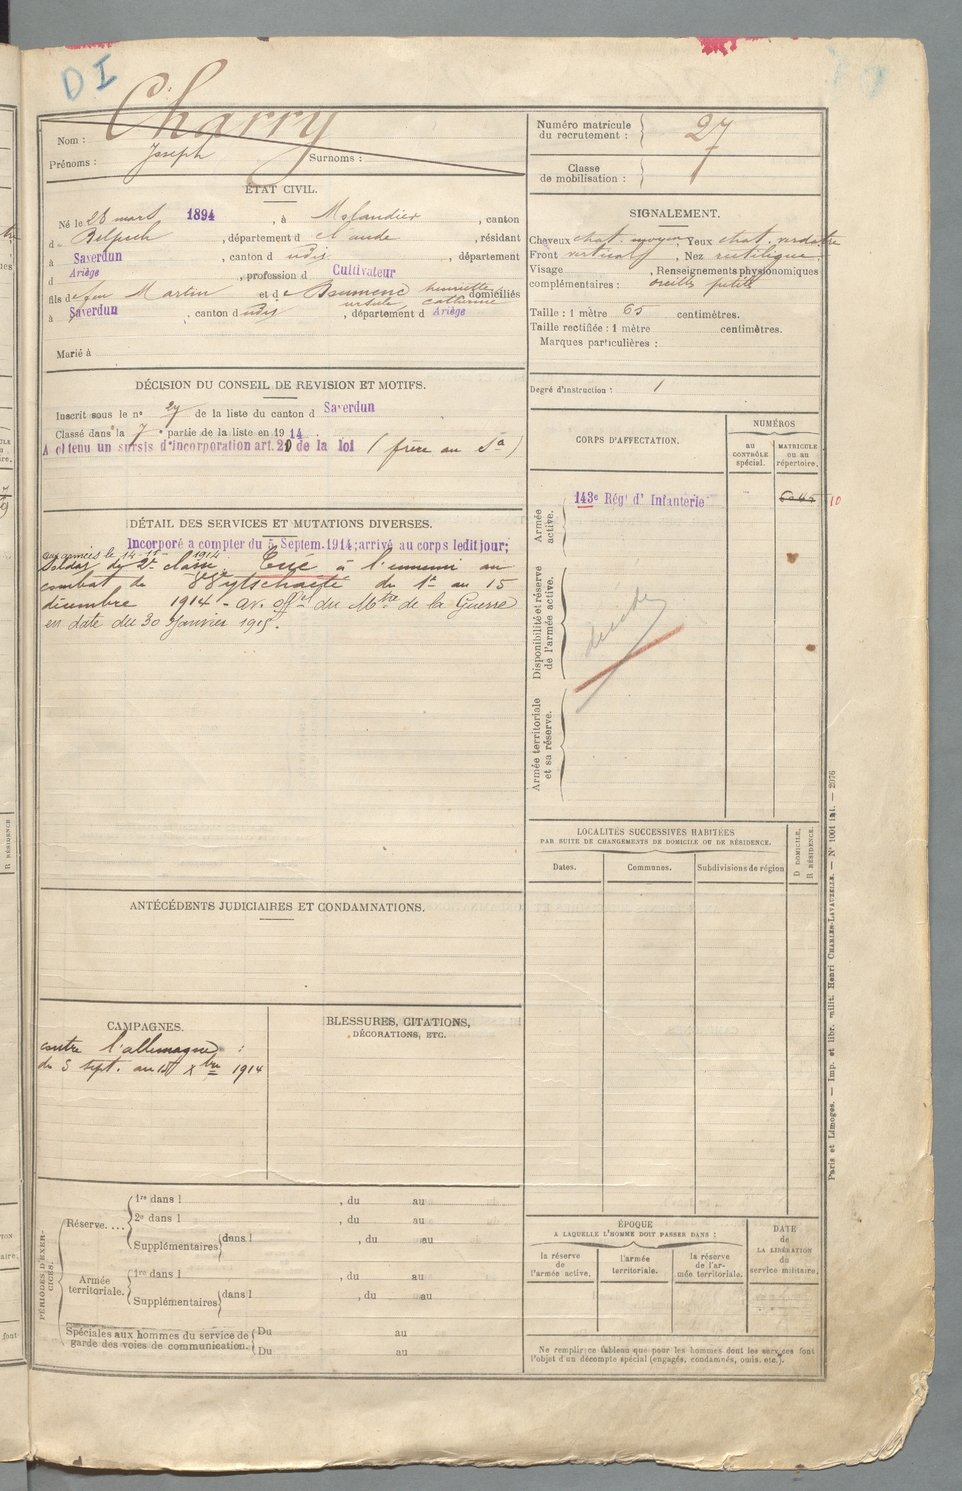 DI
Charry
Nom :
Joseph
Prénoms :
Surnoms :
Numéro matricule
du recrutement :
27
Classe
de mobilisation :
ÉTAT CIVIL.
Né le 28 mars 1894, à Molandier, canton
d Belpech, département d l'aude, résidant
à Saverdun, canton d udit, département
d Ariège, profession d Cultivateur
fils de feu Martin et de henriette
ursule, catherine domiciliés
à Saverdun, canton d udit, département d Ariège
Marié à
SIGNALEMENT.
Cheveux chat. moyen, Yeux chat. verdatre
Front vertical, Nez rectiligne
Visage , Renseignements physionomiques
complémentaires : oreille petite
Taille : 1 mètre 65 centimètres.
Taille rectifiée : 1 mètre centimètres.
Marques particulières :
Degré d'instruction : 1
DÉCISION DU CONSEIL DE REVISION ET MOTIFS.
Inscrit sous le n° 27 de la liste du canton d Saverdun
Classé dans la 7e partie de la liste en 1914.
A obtenu un sursis d'incorporation art. 20 de la loi (frère au Sce)
DÉTAIL DES SERVICES ET MUTATIONS DIVERSES.
Incorporé a compter du 5 Septem. 1914; arrivé au corps ledit jour;
aux armées le 14-11-1914
Soldat de 2e classe. Tué à l'ennemi au
combat de Wytschaete du 1er au 15
décembre 1914 - av. offel du Mtre de la Guerre
en date du 30 Janvier 1915.
CORPS D'AFFECTATION.
NUMÉROS
AU
CONTRÔLE
spécial.
MATRICULE
ou au
répertoire.
Armée
active.
143e Régt d'Infanterie
10
Disponibilité et réserve
de l'armée active.
décédé
Armée territoriale
et sa réserve.
LOCALITÉS SUCCESSIVES HABITÉES
PAR SUITE DE CHANGEMENTS DE DOMICILE OU DE RÉSIDENCE.
Dates.
Communes.
Subdivisions de région
D DOMICILE,
R RÉSIDENCE.
ANTÉCÉDENTS JUDICIAIRES ET CONDAMNATIONS.
CAMPAGNES.
contre l'allemagne :
du 5 sept. au 15 Xbre 1914
BLESSURES, CITATIONS,
DÉCORATIONS, ETC.
PÉRIODES D'EXERCICES.
Réserve....
1re dans l , du au
2e dans l , du au
Supplémentaires dans l , du au
Armée
territoriale.
1re dans l , du au
Supplémentaires dans l , du au
Spéciales aux hommes du service de
garde des voies de communication.
Du au
Du au
ÉPOQUE
A LAQUELLE L'HOMME DOIT PASSER DANS :
la réserve
de
l'armée active.
l'armée
territoriale.
la réserve
de l'ar-
mée territoriale.
DATE
de
LA LIBÉRATION
du
service militaire.
Ne remplir ce tableau que pour les hommes dont les services font
l'objet d'un décompte spécial (engagés, condamnés, omis, etc.).
Paris et Limoges. — Imp. et libr. milit. Henri CHARLES-LAVAUZELLE. — N° 1001 bis. — 2076